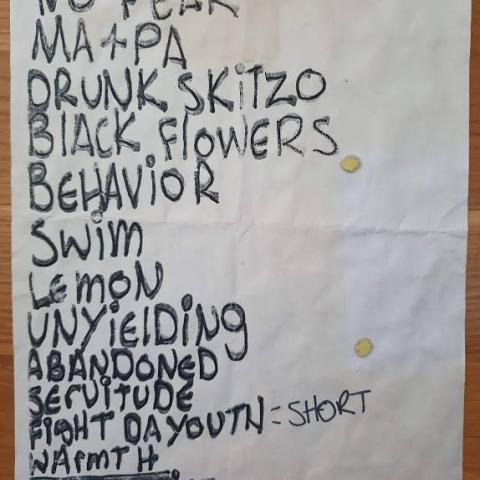 NO FEAR
MA+PA
DRUNK SKiTZO
BlACK FlOWERS
BEHAViOR
SWiM
LEMON
UNYiElDiNg
ABANDONED
SERViTUDE
FigHT DA YOUTH = SHORT
WARMTH